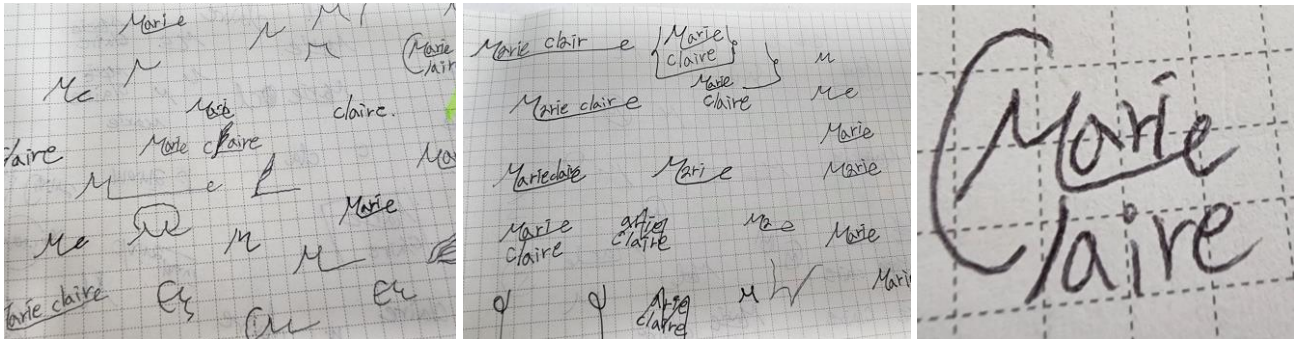 Marie
Marie
Claire
Me
Marie
claire.
claire
Marie claire
M e
Marie
Me
Marie claire
Marie claire
Marie
claire
M
Marie
claire
Marie claire
Me
Marie
Marieclaire
Marie
Marie
Marie
Claire
arie
claire
Marie
arie
claire
M
Marie
Claire